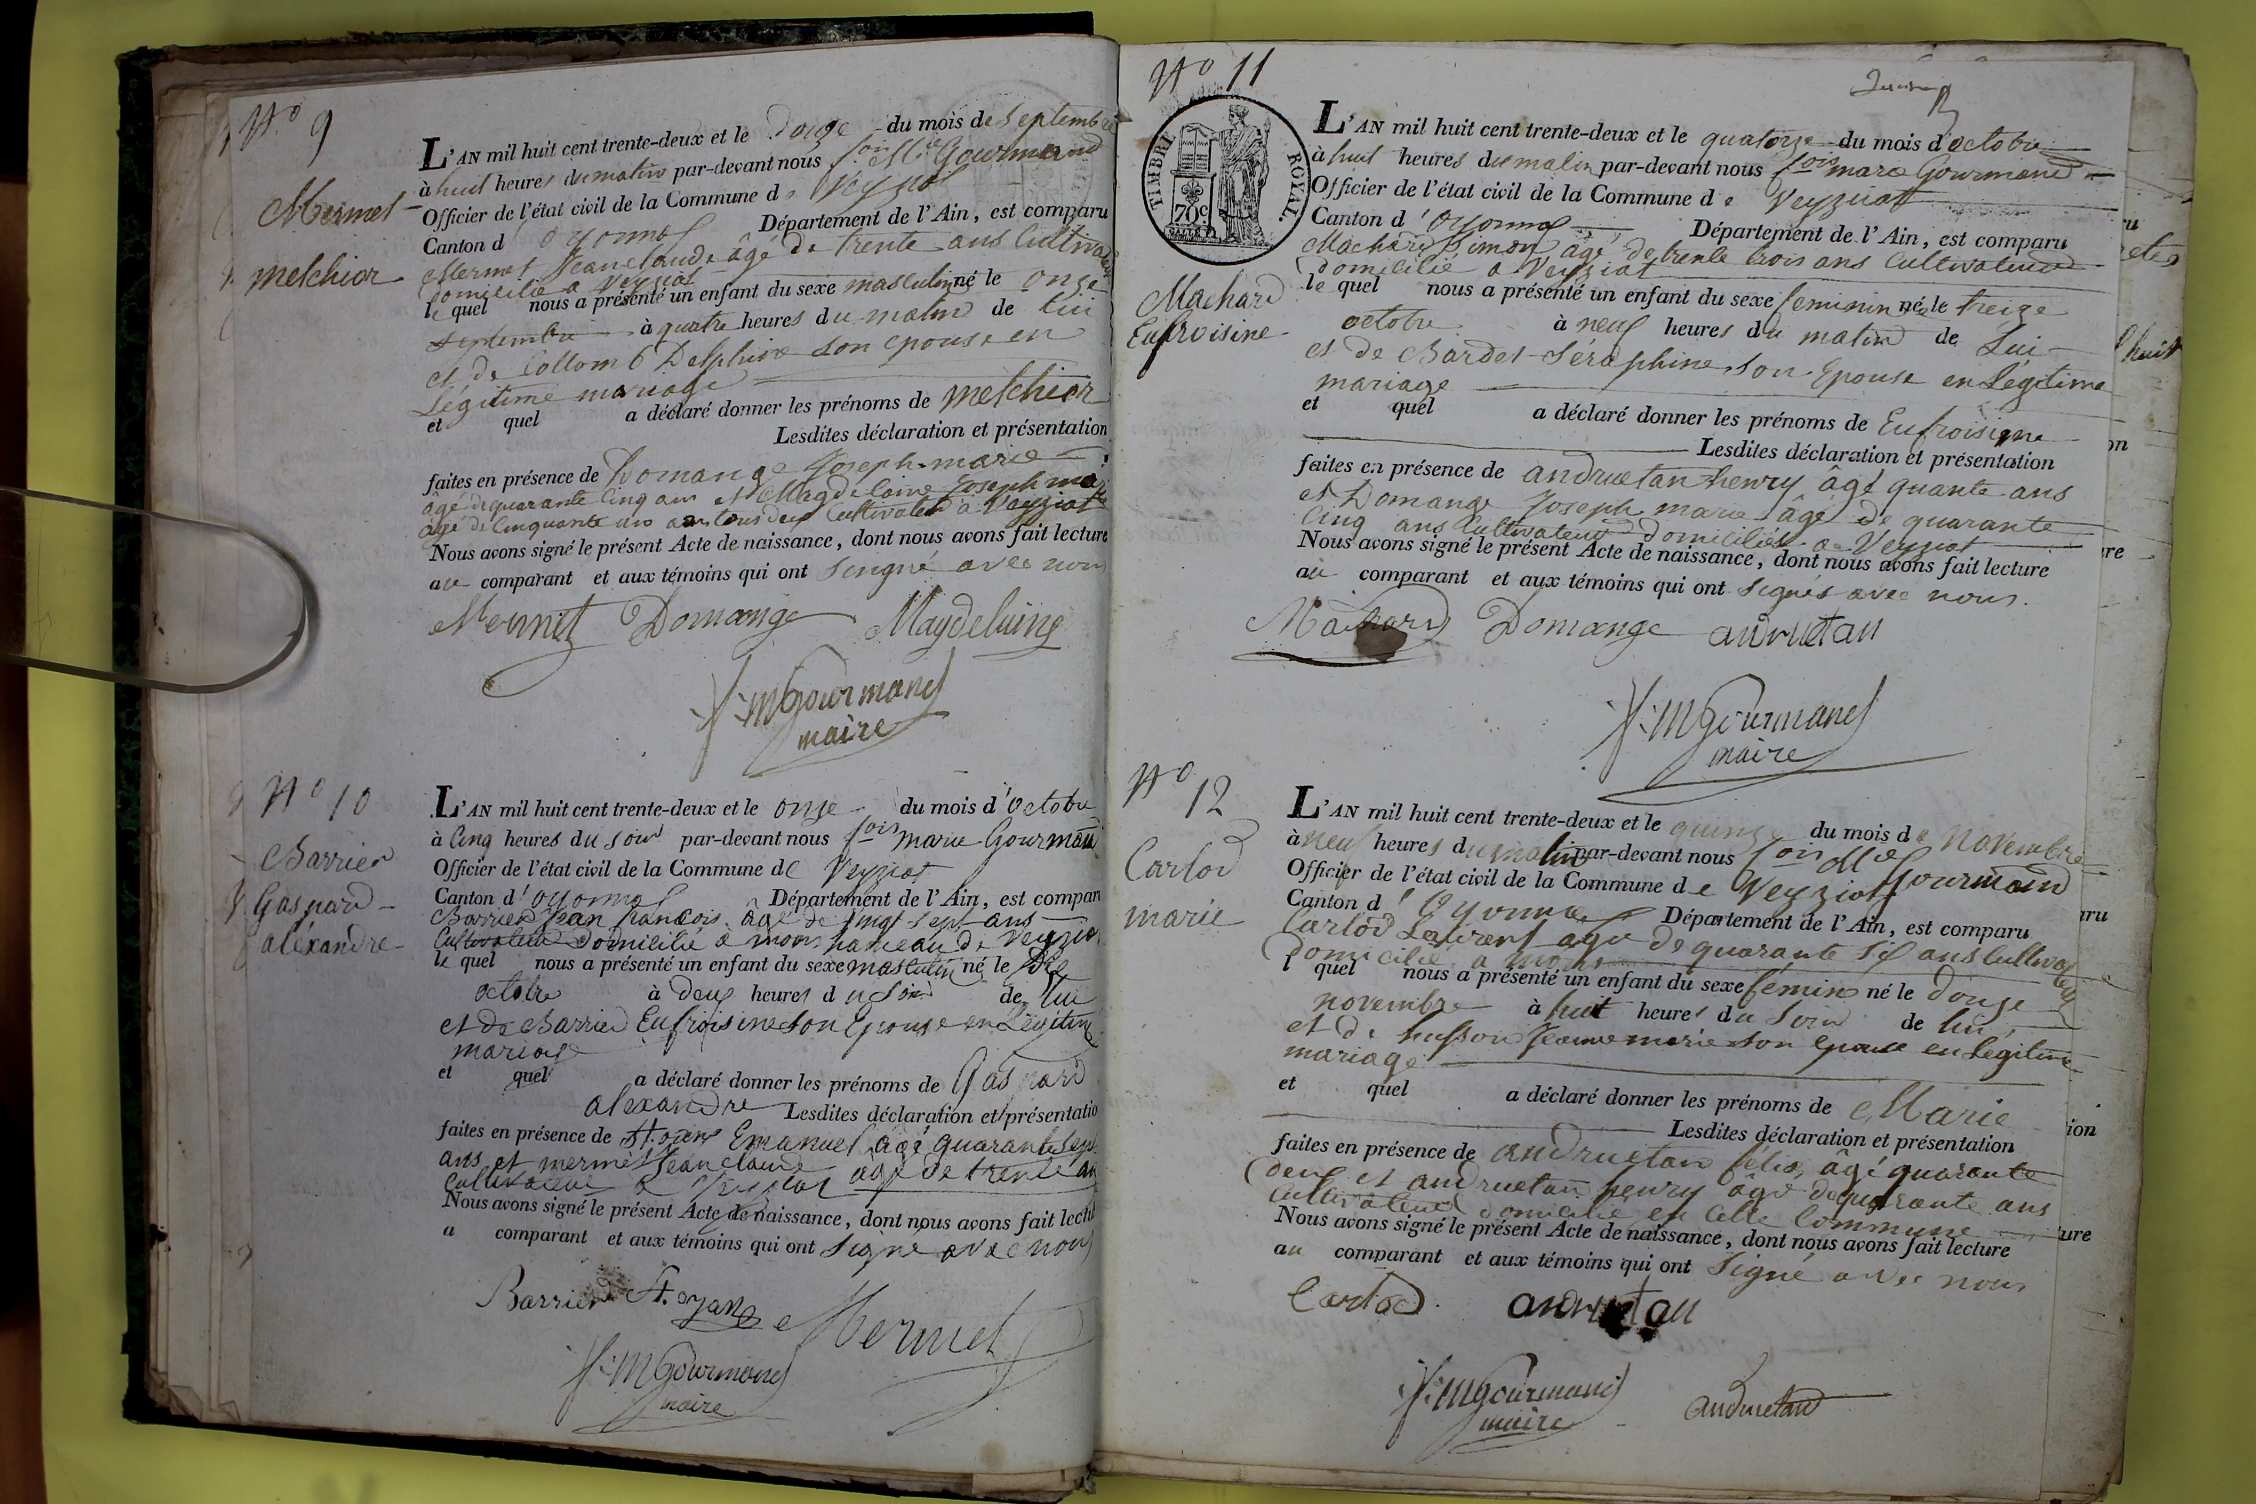 N° 9
Mermet
melchior
L'AN mil huit cent trente-deux et le douze du mois de septembre
à huit heures du matin par-devant nous fois Mie Gourmand
Officier de l'état civil de la Commune de Veyziat
Canton d'oyonnax Département de l'Ain, est comparu
Mermet Jean claude âgé de trente ans Cultivateur
domicilié a Veyziat
le quel nous a présenté un enfant du sexe masculin né le onze
septembre à quatre heures du matin de lui
et de Collomb Delphine son epouse en
Légitime mariage
et quel a déclaré donner les prénoms de melchior
Lesdites déclaration et présentation
faites en présence de Domange Joseph marie
âgé de quarante cinq ans et Magdelaine Joseph marie
âgé de Cinquante un ans tous deux Cultivateur a Veyziat
Nous avons signé le présent Acte de naissance, dont nous avons fait lecture
au comparant et aux témoins qui ont Singné avec nous
Mermet Domange Magdelaine
f: M Gourmand
maire
N° 10
Barrier
Gaspard
aléxandre
L'AN mil huit cent trente-deux et le onze du mois d'octobre
à Cinq heures du soir par-devant nous fois marie Gourmand
Officier de l'état civil de la Commune de Veyziat
Canton d'oyonnax Département de l'Ain, est compar
Barrier Jean francois âgé de vingt sept ans
Cultivateur domicilié a mons hameau de Veyziat
le quel nous a présenté un enfant du sexe masculin né le dix
octobre à deux heures du soir de lui
et de Barrier Eufroisine son Epouse en Légitime
mariage
et quel a déclaré donner les prénoms de Gaspard
alexandre Lesdites déclaration et présentatio
faites en présence de St. oyant Emanuel âgé quarante sept
ans et mermet Jean claude âgé de trente an
Cultivateur a Veyziat
Nous avons signé le présent Acte de naissance, dont nous avons fait lectu
a comparant et aux témoins qui ont Signé avec nous
Barrier St. oyant Mermet
f: M Gourmand
maire
N° 11
TIMBRE ROYAL
70c
Machard
Eufroisine
L'AN mil huit cent trente-deux et le quatorze du mois d'octobre
à huit heures du matin par-devant nous fois marie Gourmand
Officier de l'état civil de la Commune de Veyziat
Canton d'oyonnax Département de l'Ain, est comparu
Machard Simon âgé de trente trois ans Cultivateur
domicilié a Veyziat
le quel nous a présenté un enfant du sexe feminin né le treize
octobre à neuf heures du matin de Lui
et de Bardet Séraphine son Epouse en Légitime
mariage
et quel a déclaré donner les prénoms de Eufroisine
Lesdites déclaration et présentation
faites en présence de andruetan henry âgé quante ans
et Domange Joseph marie âgé de quarante
Cinq ans Cultivateur domiciliés a Veyziat
Nous avons signé le présent Acte de naissance, dont nous avons fait lecture
au comparant et aux témoins qui ont signés avec nous.
Machard Domange andruetan
f: M Gourmand
maire
N° 12
Carlod
marie
L'AN mil huit cent trente-deux et le quinze du mois de Novembre
à neuf heures du matin par-devant nous fois Mie Gourmand
Officier de l'état civil de la Commune de Veyziat
Canton d'Oyonnax Département de l'Ain, est comparu
Carlod Laurent âgé de quarante six ans Cultivateur
domicilié a mons
l quel nous a présenté un enfant du sexe fémin né le douze
novembre à huit heures du Soir de lui
et de husson Jeanne marie son epouse en Légitime
mariage
et quel a déclaré donner les prénoms de Marie
Lesdites déclaration et présentation
faites en présence de andruetan félix âgé quarante
deux et andruetan henry âgé de quarante ans
Cultivateur domicilié en Cette Commune
Nous avons signé le présent Acte de naissance, dont nous avons fait lecture
au comparant et aux témoins qui ont Signé avec nous
Carlod andruetan
f: M Gourmand
maire
andruetand